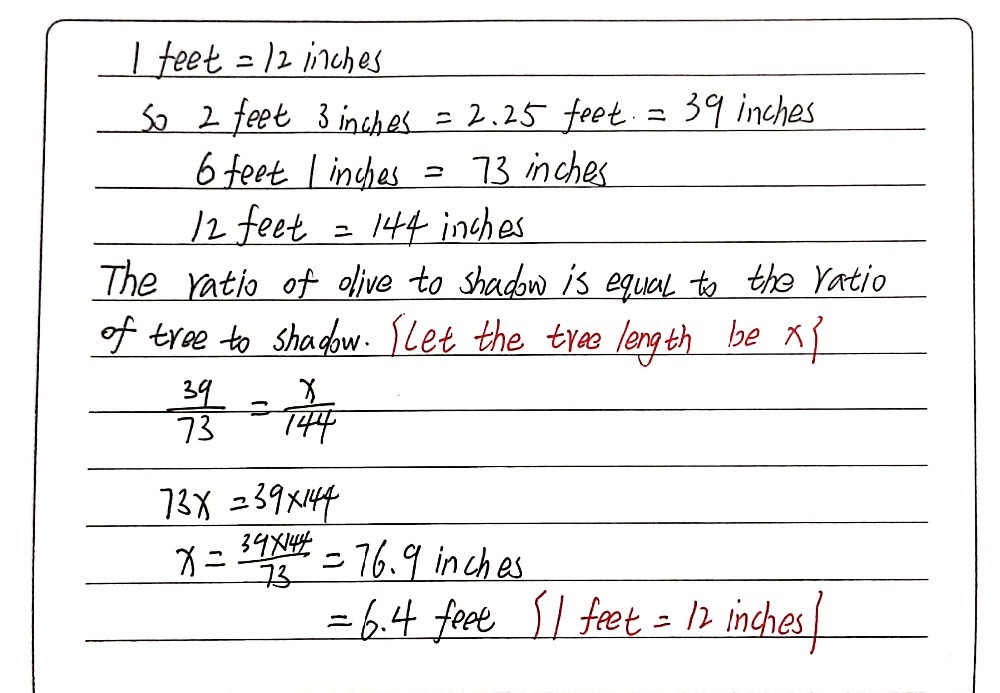 1 feet = 12 inches
So 2 feet 3 inches = 2.25 feet. = 39 inches
6 feet 1 inches = 73 inches
12 feet = 144 inches
The ratio of olive to shadow is equal to the ratio
of tree to shadow. {Let the tree length be x}
39/73 = x/144
73x = 39×144
x = 39×144/73 = 76.9 inches
= 6.4 feet {1 feet = 12 inches}